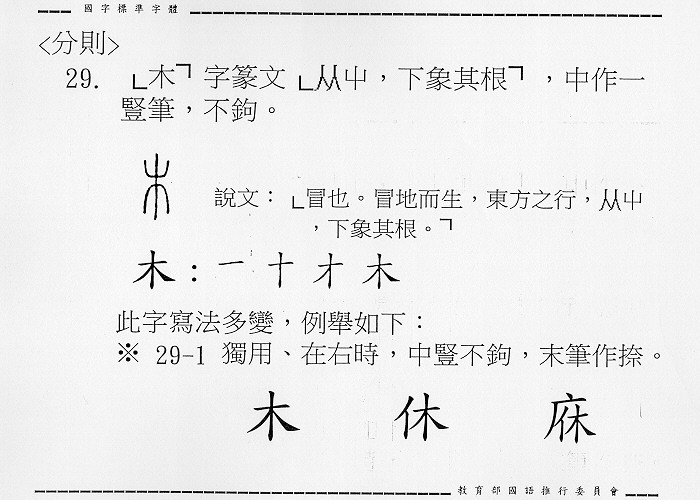 國字標準字體
<分則>
29. 「木」字篆文「从屮，下象其根」，中作一
豎筆，不鉤。
說文：「冒也。冒地而生，東方之行，从屮
，下象其根。」
木：一 十 才 木
此字寫法多變，例舉如下：
※ 29-1 獨用、在右時，中豎不鉤，末筆作捺。
木 休 床
教育部國語推行委員會